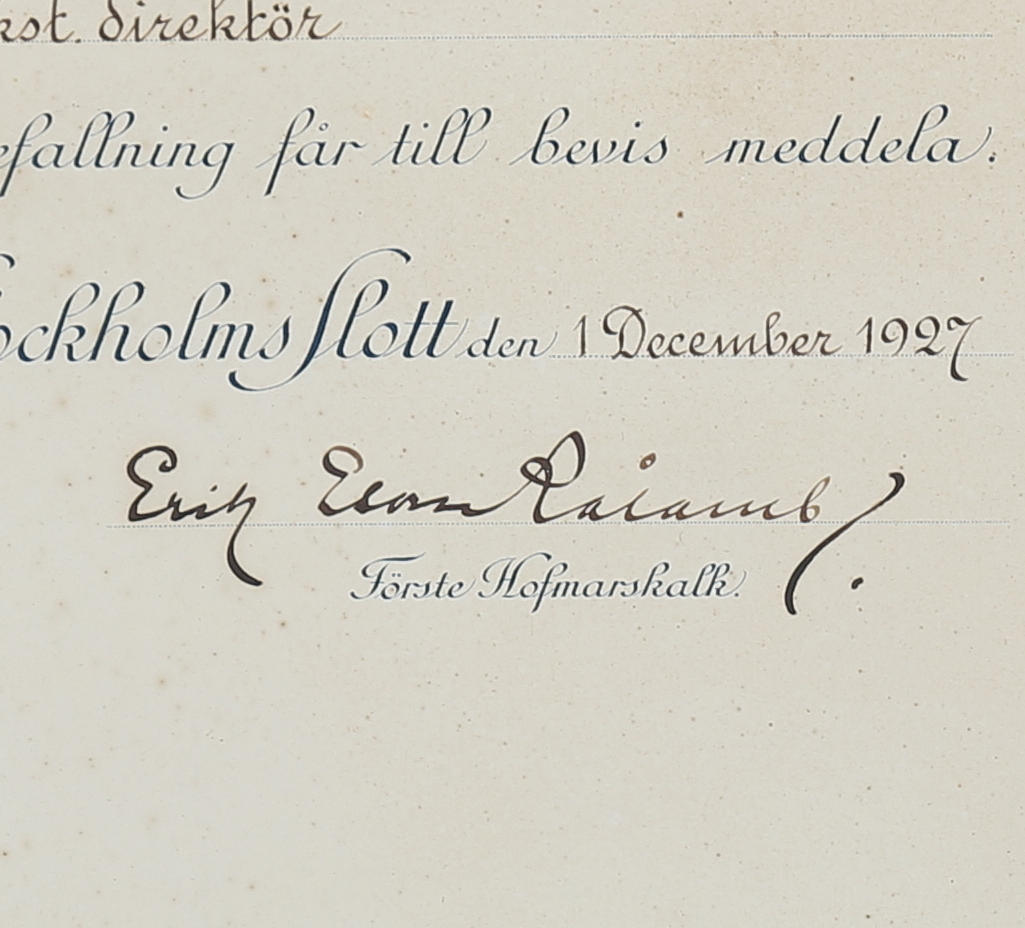 kst. direktör
efallning får till bevis meddela.
ockholms Slott den 1 December 1927
Erik Eson Rålamb.
Förste Hofmarskalk.